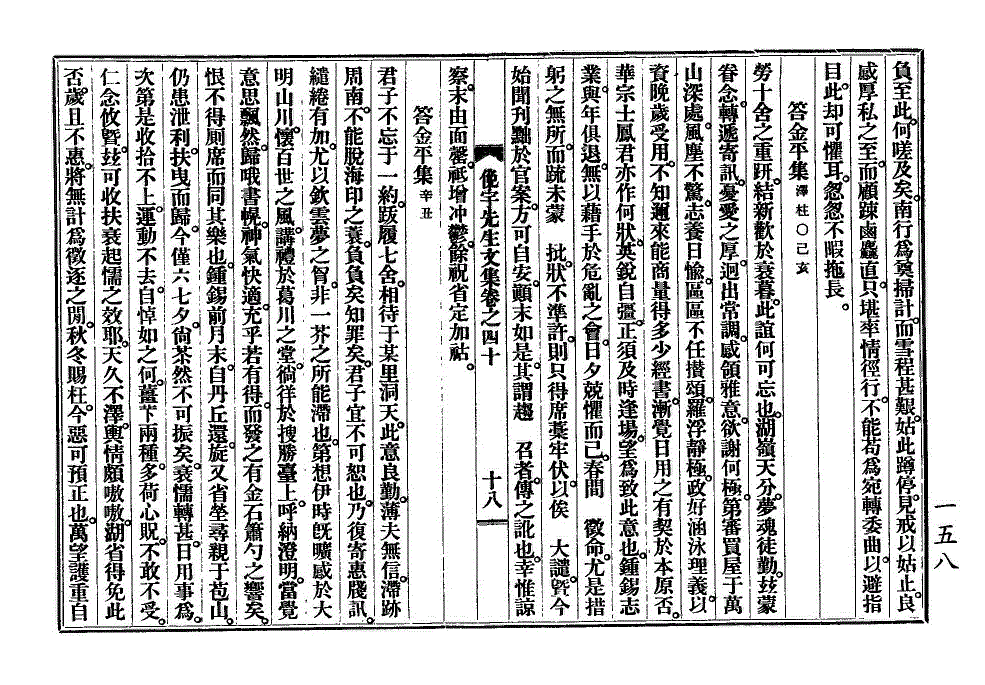 負至此。何嗟及矣。南行爲奠掃計。而雪程甚艱。姑此蹲停。見戒以姑止。良
感厚私之至。而顧踈鹵麤直。只堪率情徑行。不能苟爲宛轉委曲。以避指
目。此却可懼耳。忽忽不暇拖長。
答金平集 澤柱○己亥
勞十舍之重趼。結新歡於衰暮。此誼何可忘也。湖嶺天分。夢魂徒勤。玆蒙
眷念。轉遞寄訊。憂愛之厚。迥出常調。感領雅意。欲謝何極。第審買屋于萬
山深處。風塵不驚。志養日愉。區區不任攅頌。羅浮靜極。政好涵泳理義。以
資晩歲受用。不知邇來能商量得多少經書。漸覺日用之有契於本原否。
華宗士鳳君亦作何狀。英銳自彊。正須及時逢場。望爲致此意也。鍾錫志
業與年俱退。無以藉手於危亂之會。日夕兢懼而已。春間 徵命。尤是措
躬之無所。而䟽未蒙 批。狀不準許。則只得席藁牢伏。以俟 大譴。曁今
始聞刊黜於官案。方可自安。顚末如是。其謂趨 召者。傳之訛也。幸惟諒
察。末由面罄。祗增冲鬱。餘祝省定加祜。
俛宇先生文集卷之四十
十八
答金平集 辛丑
君子不忘于一約。跋履七舍。相待于某里洞天。此意良勤。薄夫無信。滯跡
周南。不能脫海印之蓑。負負矣。知罪矣。君子宜不可恕也。乃復寄惠牋訊。
繾綣有加。尤以欽雲夢之胷。非一芥之所能滯也。第想伊時旣曠感於大
明山川。懷百世之風。講禮於葛川之堂。徜徉於搜勝臺上。呼納澄明。當覺
意思飄然。歸哦書幌。神氣快適。充乎若有得。而發之有金石簫勺之響矣。
恨不得厠席而同其樂也。鍾錫前月末。自丹丘還。旋又省塋尋親于苞山。
仍患泄利。扶曳而歸。今僅六七夕。尙苶然不可振矣。衰懦轉甚。日用事爲。
次第是收拾不上。運動不去。自悼如之何。薑芐兩種。多荷心貺。不敢不受。
仁念攸曁。玆可收扶衰起懦之效耶。天久不澤。輿情頗嗷嗷。湖省得免此
否。歲且不惠。將無計爲徵逐之閒。秋冬賜枉。今惡可預正也。萬望護重自
一五八